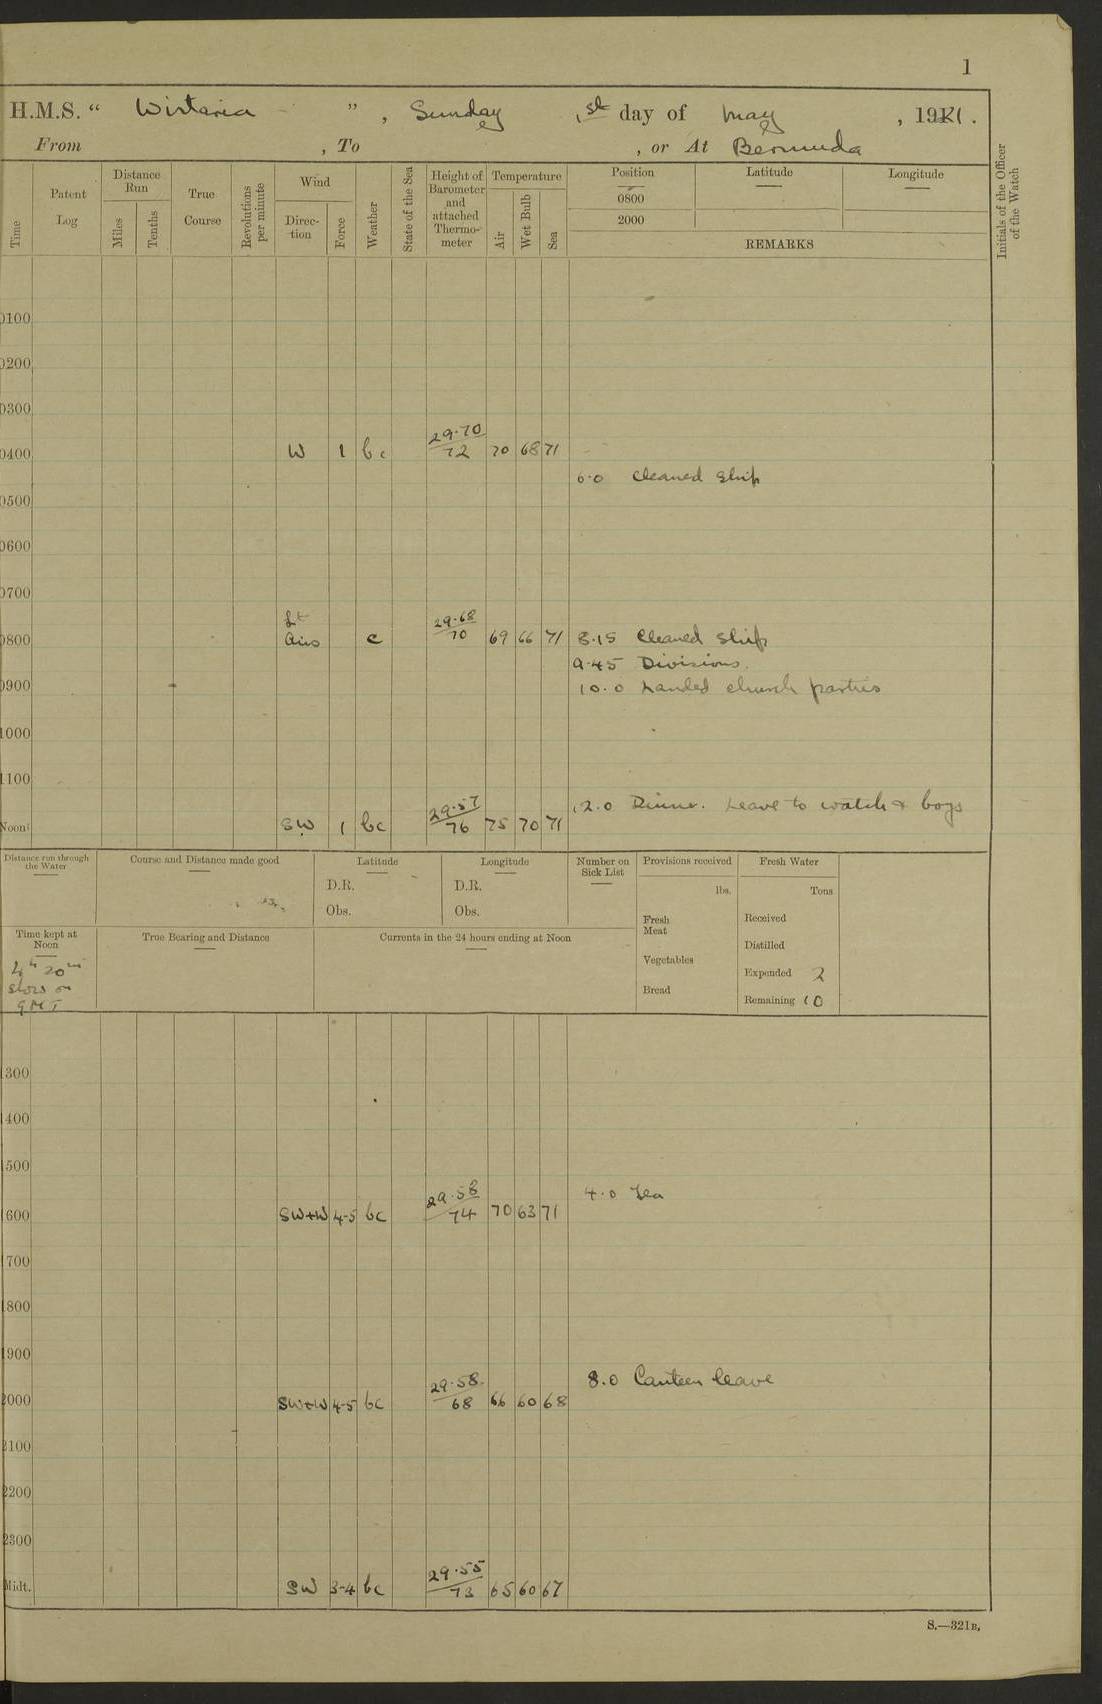 1
H.M.S. “ Wistaria ”, Sunday , 1st day of May , 1921.
From , To , or At Bermuda
Time
Patent Log
Distance Run
Miles
Tenths
True Course
Revolutions per minute
Wind
Direc-tion
Force
Weather
State of the Sea
Height of Barometer and attached Thermo-meter
Temperature
Air
Wet Bulb
Sea
Position
0800
2000
Latitude
Longitude
REMARKS
Initials of the Officer of the Watch
0100
0200
0300
0400 W 1 bc 29.70 72 70 68 71
6.0 Cleaned Ship
0500
0600
0700
0800 Lt Airs c 29.68 70 69 66 71 8.15 Cleaned Ship
9.45 Divisions.
0900 10.0 Landed church parties
1000
1100
12.0 Dinner. Leave to watch & boys
Noon SW 1 bc 29.57 76 75 70 71
Distance run through the Water
Course and Distance made good
Latitude
D.R.
Obs.
Longitude
D.R.
Obs.
Number on Sick List
Provisions received
lbs.
Fresh Meat
Vegetables
Bread
Fresh Water
Tons
Received
Distilled
Expended 2
Remaining 10
Time kept at Noon
4h 20m
slow on
GMT
True Bearing and Distance
Currents in the 24 hours ending at Noon
1300
1400
1500
4.0 Tea
1600 SW+W 4-5 bc 29.58 74 70 63 71
1700
1800
1900
8.0 Canteen leave
2000 SW+W 4-5 bc 29.58 68 66 60 68
2100
2200
2300
Midt. SW 3-4 bc 29.55 73 65 60 67
S.—321B.